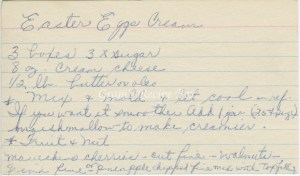 Easter Eggs Cream
3 boxes 3X Sugar
8 oz. Cream cheese
1/2 lb. butter or oleo
* Mix & mold & let cool - ref.
If you want it smoother Add 1 jar (
marshmallow to make creamier.
* Fruit & Nut
maraschino cherries - cut fine - walnuts
fine pineapple chopped fine mix with